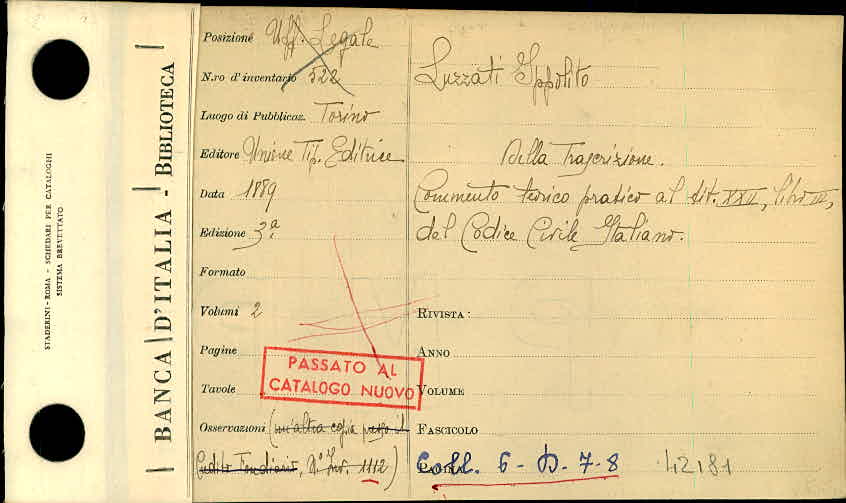 STADERINI-ROMA - SCHEDARI PER CATALOGHI
SISTEMA BREVETTATO
BANCA D'ITALIA - BIBLIOTECA
Posizione Uff. Legale
N.ro d'inventario 522
Luogo di Pubblicaz. Torino
Editore Unione Tip. Editrice
Data 1889
Edizione 3ª
Formato
Volumi 2
Pagine
Tavole
Osservazioni (un'altra copia presso il
Credito Fondiario, N° Inv. 1112)
PASSATO AL
CATALOGO NUOVO
Luzzati Ippolito
Della Trascrizione.
Commento teorico pratico al tit. XXII, libro III,
del Codice Civile Italiano.
RIVISTA:
ANNO
VOLUME
FASCICOLO
Coll. 6-D-7-8 42181